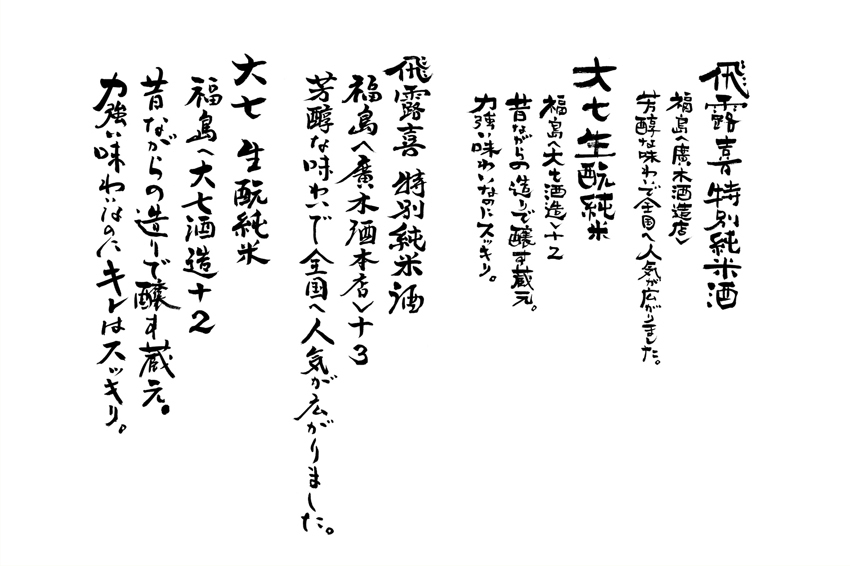 飛露喜 特別純米酒
福島〈廣木酒造店〉
芳醇な味わいで全国へ人気が広がりました。
大七 生酛純米
福島〈大七酒造〉+2
昔ながらの造りで醸す蔵元。
力強い味わいなのにスッキリ。
飛露喜 特別純米酒
福島〈廣木酒本店〉+3
芳醇な味わいで全国へ人気が広がりました。
大七 生酛純米
福島〈大七酒造+2
昔ながらの造りで醸す蔵元。
力強い味わいなのにキレはスッキリ。